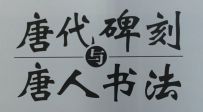 唐代碑刻
与
唐人书法